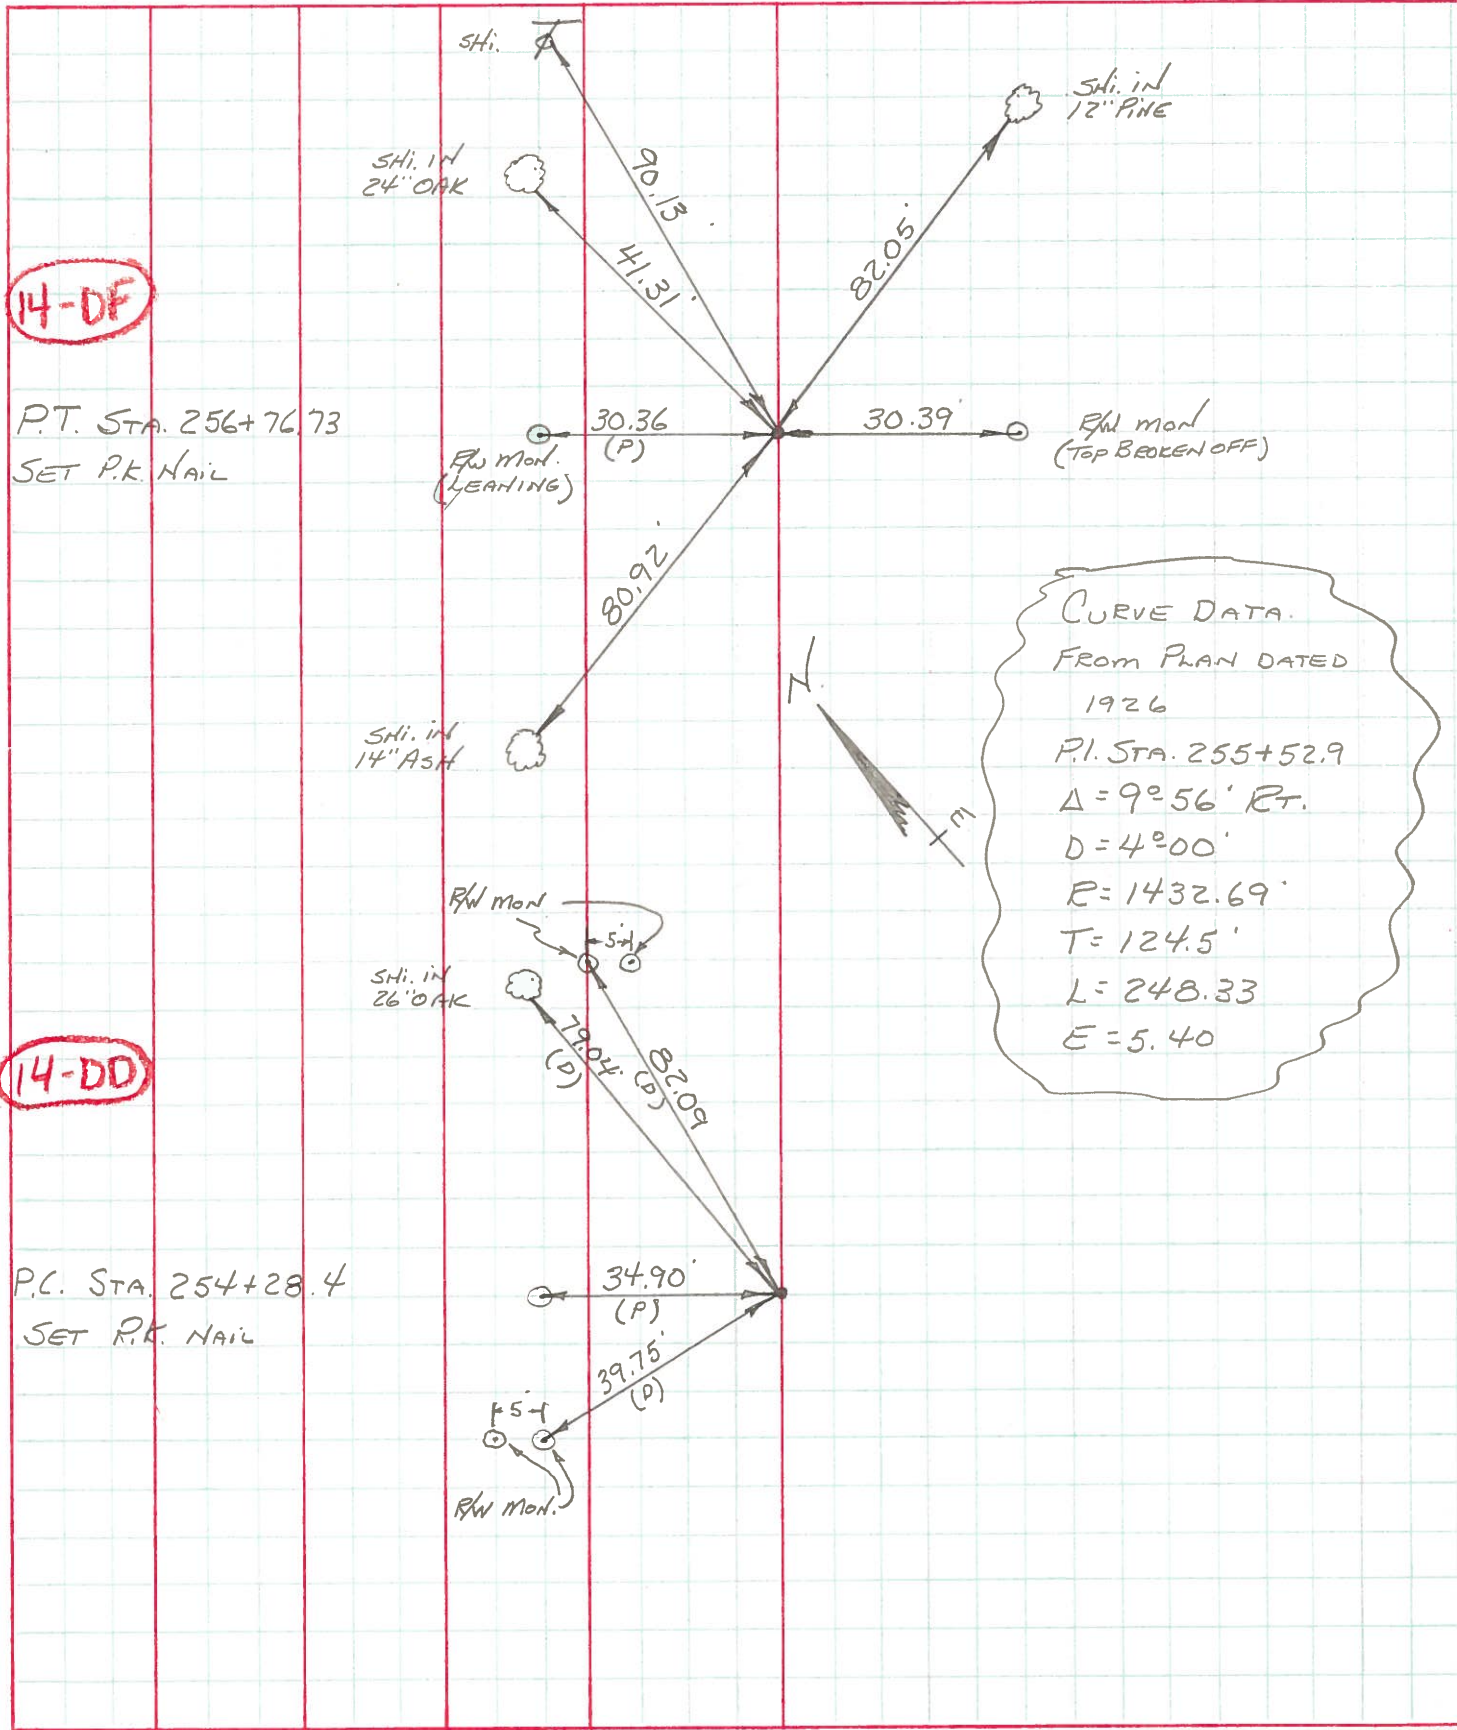 SHi.
SHi. in
12" PINE
SHi. IN
24" OAK
90.13'
41.31'
82.05'
14-DF
P.T. STA. 256+76.73
SET P.K. NAiL
30.36
(P)
30.39
R/W MON.
(LEANING)
R/W MON
(TOP BROKEN OFF)
80.92'
SHi. in
14" ASH
N.
E
CURVE DATA.
FROM PLAN DATED
1926
P.I. STA. 255+52.9
Δ = 9°56' RT.
D = 4°00'
R = 1432.69'
T = 124.5'
L = 248.33
E = 5.40
R/W MON
5'
SHi. in
26" OAK
79.04'
(D)
82.09
(D)
14-DD
P.C. STA. 254+28.4
SET P.K. NAiL
34.90'
(P)
39.75'
(D)
5'
R/W MON.